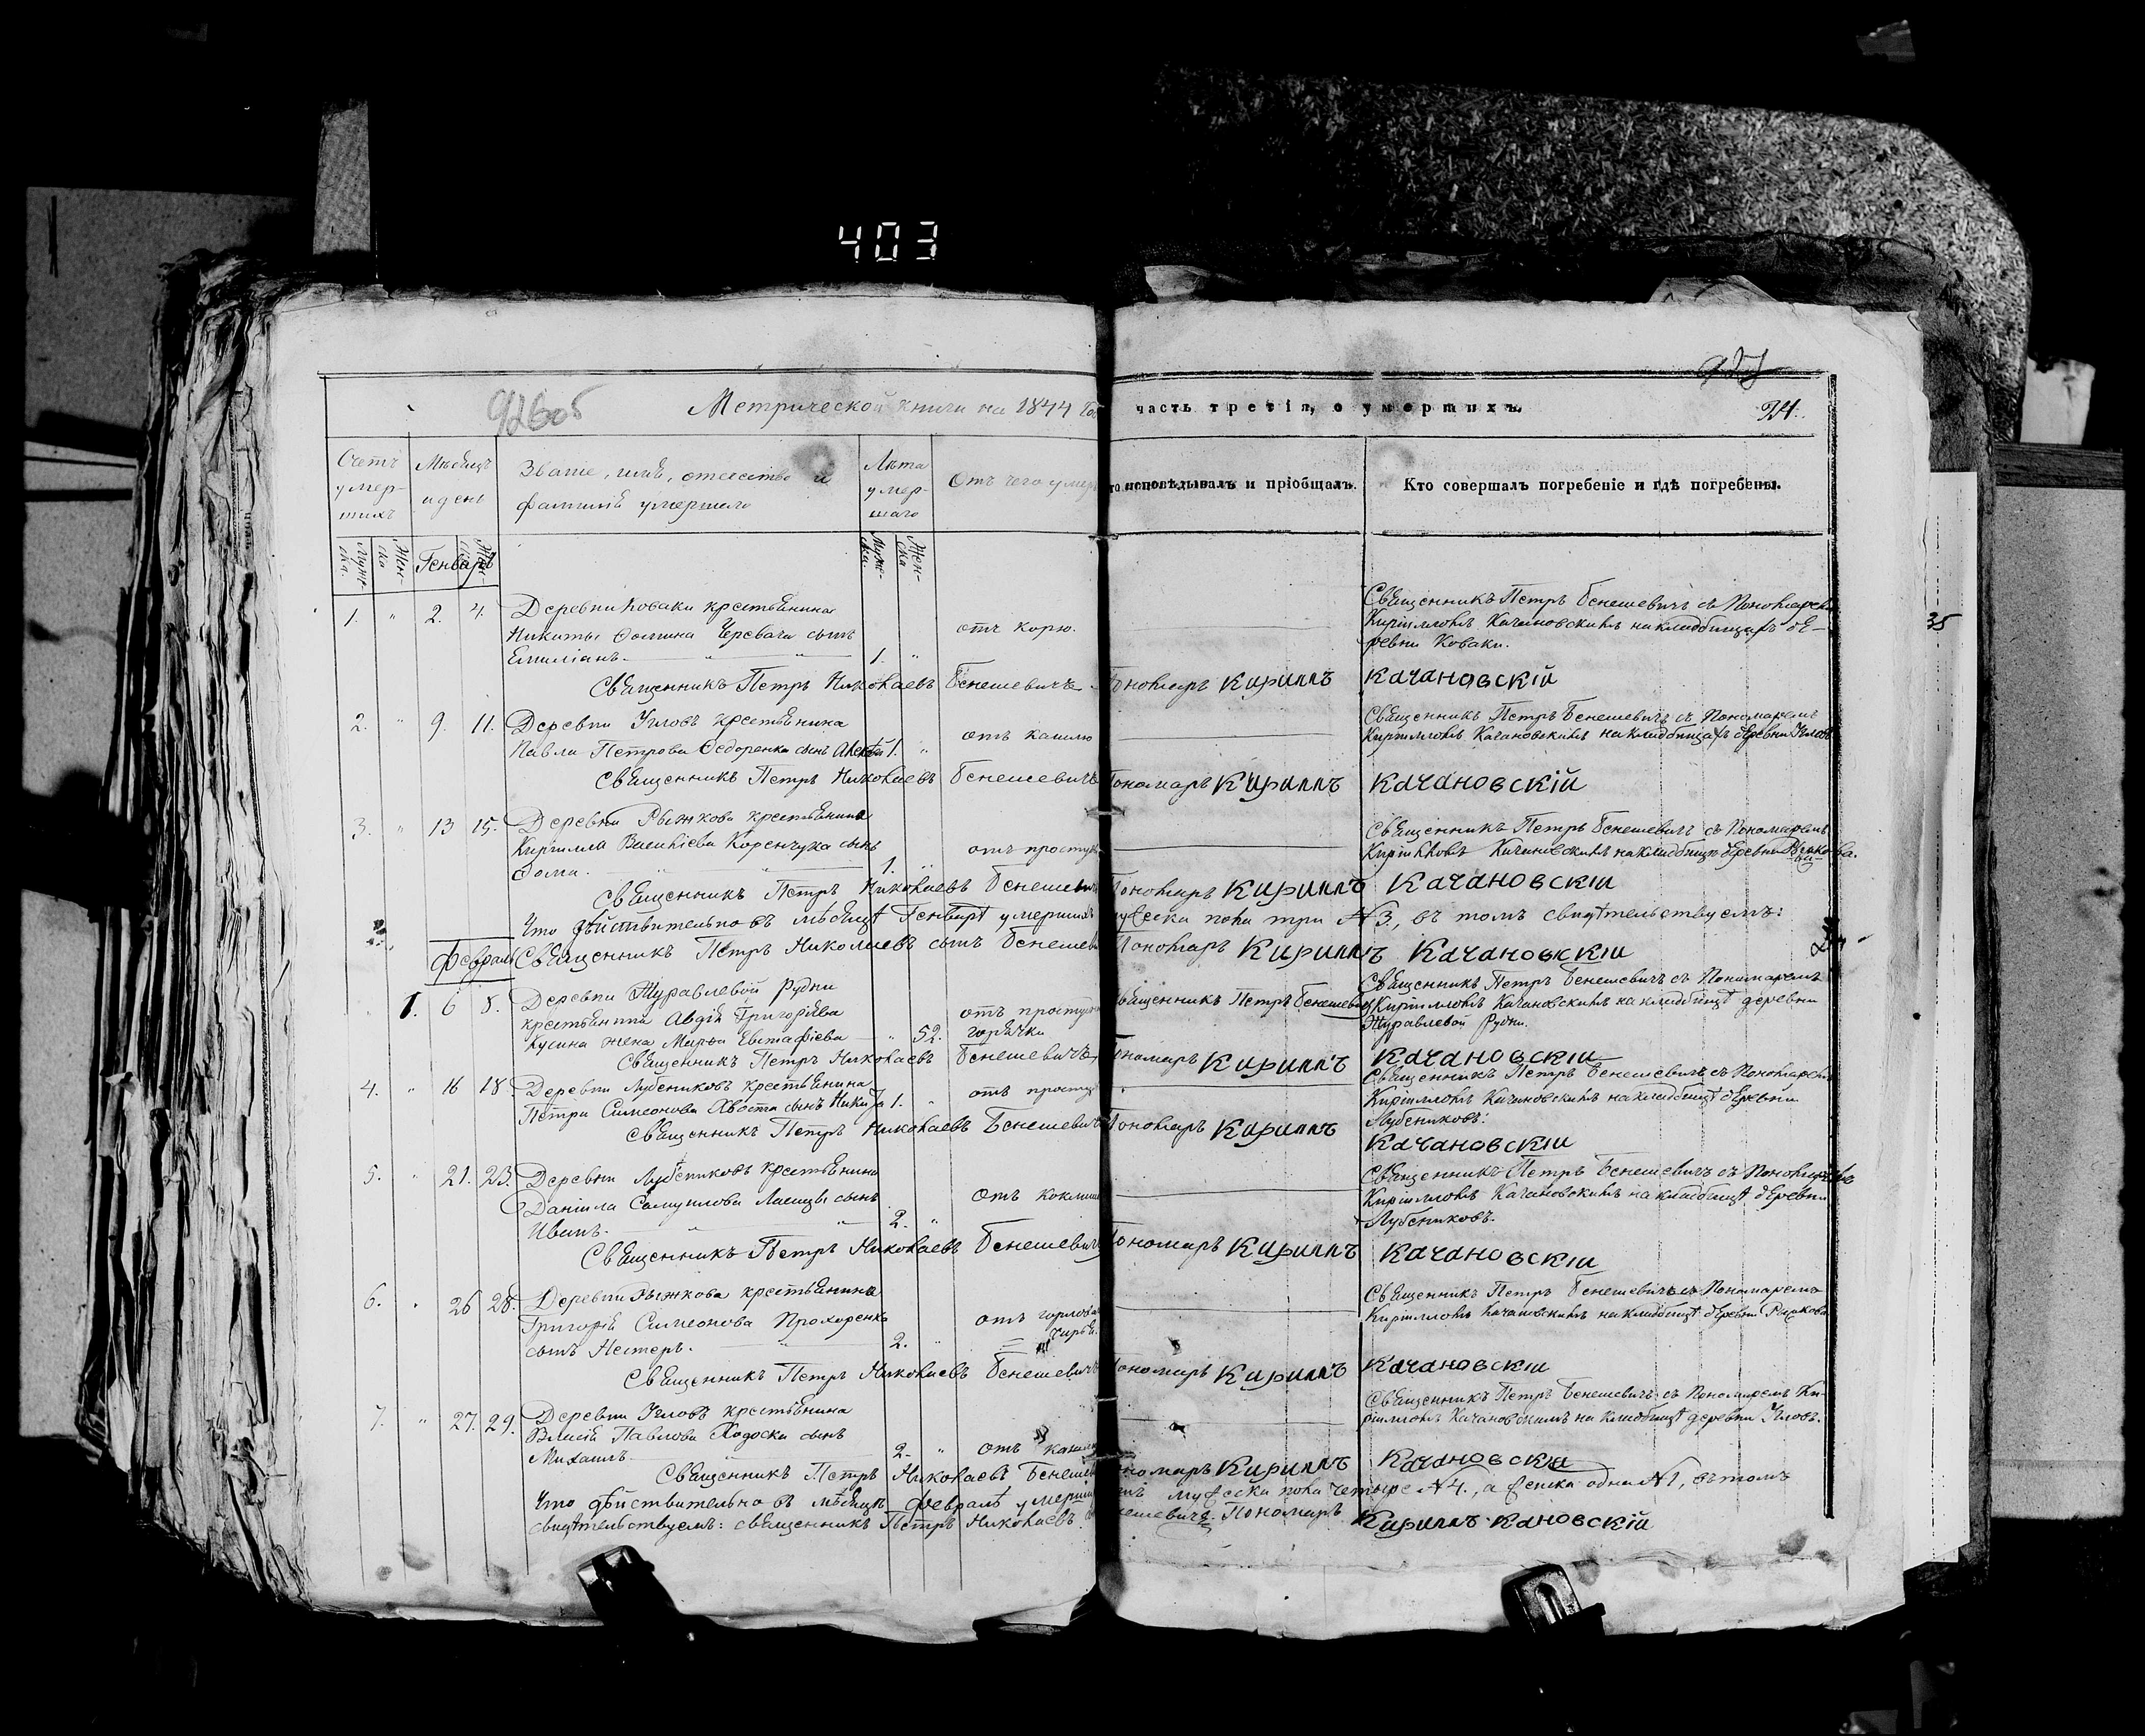 403
927
926 об
Метрической книги на 1844 Год часть третія, о умершихъ.
24.
Счетъ умер-шихъ
Мѣсяцъ и день
Званіе, имя, отечество и фамилія умершаго
Лѣта умер-шаго
Отъ чего умеръ
исповѣдывалъ и пріобщалъ.
Кто совершалъ погребеніе и гдѣ погребены.
Муже-ска. Жен-ска Генварь Муже-ска. Жен-ска
35
1. " 2. 4. Деревни Коваки крестьянина
Никиты Фомина Черевача сынъ отъ корю.
Емиліанъ. 1. "
Священникъ Петръ Бенешевичъ съ Пономаремъ
Кирилломъ Качановскимъ на кладбищахъ де-
ревни Коваки.
Священникъ Петръ Николаевъ Бенешевичъ Пономарь Кириллъ Качановскій
2. " 9. 11. Деревни Углов крестьянина
Павла Петрова Федоренка сынъ Алексѣй 1. " отъ кашлю
Священникъ Петръ Бенешевичъ съ Пономаремъ
Кирилломъ Качановскимъ на кладбищахъ деревни Углов
Священникъ Петръ Николаевъ Бенешевичъ Пономарь Кириллъ Качановскій
3. " 13 15. Деревни Рыжкова крестьянина
Кирилла Василіева Коренчука сынъ отъ простуды
Фома. 1. "
Священникъ Петръ Бенешевичъ съ Пономаремъ
Кирилломъ Качановскимъ на кладбищѣ деревни Рыжкова.
Священникъ Петръ Николаевъ Бенешевичъ Пономарь Кириллъ Качановскій
Что дѣйствительно въ мѣсяцѣ Генварѣ умершихъ мужеска пола три №3, въ томъ свидѣтельствуемъ:
Февраль Священникъ Петръ Николаевъ сынъ Бенешевичъ Пономарь Кириллъ Качановскій
1. 6 8. Деревни Журавлевой Рудни
крестьянина Авдія Григоріева отъ простудной
Кусина жена Марфа Евстафіева " 52. горячки
Священникъ Петръ Бенешевичъ
Священникъ Петръ Бенешевичъ съ Пономаремъ
Кирилломъ Качановскимъ на кладбищѣ деревни
Журавлевой Рудни.
Священникъ Петръ Николаевъ Бенешевичъ Пономарь Кириллъ Качановскій
4. " 16 18. Деревни Лубениковъ крестьянина
Петра Симеонова Хвоста сынъ Никита 1. " отъ простуды
Священникъ Петръ Бенешевичъ съ Пономаремъ
Кирилломъ Качановскимъ на кладбищѣ деревни
Лубениковъ.
Священникъ Петръ Николаевъ Бенешевичъ Пономарь Кириллъ Качановскій
5. " 21. 23. Деревни Лубениковъ крестьянина
Даніила Самуилова Лисицы сынъ отъ коклюша
Иванъ. 2. "
Священникъ Петръ Бенешевичъ съ Пономаремъ
Кирилломъ Качановскимъ на кладбищѣ деревни
Лубениковъ.
Священникъ Петръ Николаевъ Бенешевичъ Пономарь Кириллъ Качановскій
6. " 26 28. Деревни Рыжкова крестьянина
Григорія Симеонова Прохоренка отъ
сынъ Нестеръ. 2. "
Священникъ Петръ Бенешевичъ съ Пономаремъ
Кирилломъ Качановскимъ на кладбищѣ деревни Рыжкова
Священникъ Петръ Николаевъ Бенешевичъ Пономарь Кириллъ Качановскій
7. " 27. 29. Деревни Углов крестьянина
Власія Павлова Ходоска сынъ
Михаилъ 2. " отъ кашлю
Священникъ Петръ Бенешевичъ съ Пономаремъ Ки-
рилломъ Качановскимъ на кладбищѣ деревни Углов.
Священникъ Петръ Николаевъ Бенешевичъ Пономарь Кириллъ Качановскій
Что дѣйствительно въ мѣсяцѣ Февралѣ умершихъ мужеска пола четыре №4., а женска одна №1, въ томъ
свидѣтельствуемъ: священникъ Петръ Николаевъ Бенешевичъ. Пономарь Кириллъ Кановскій